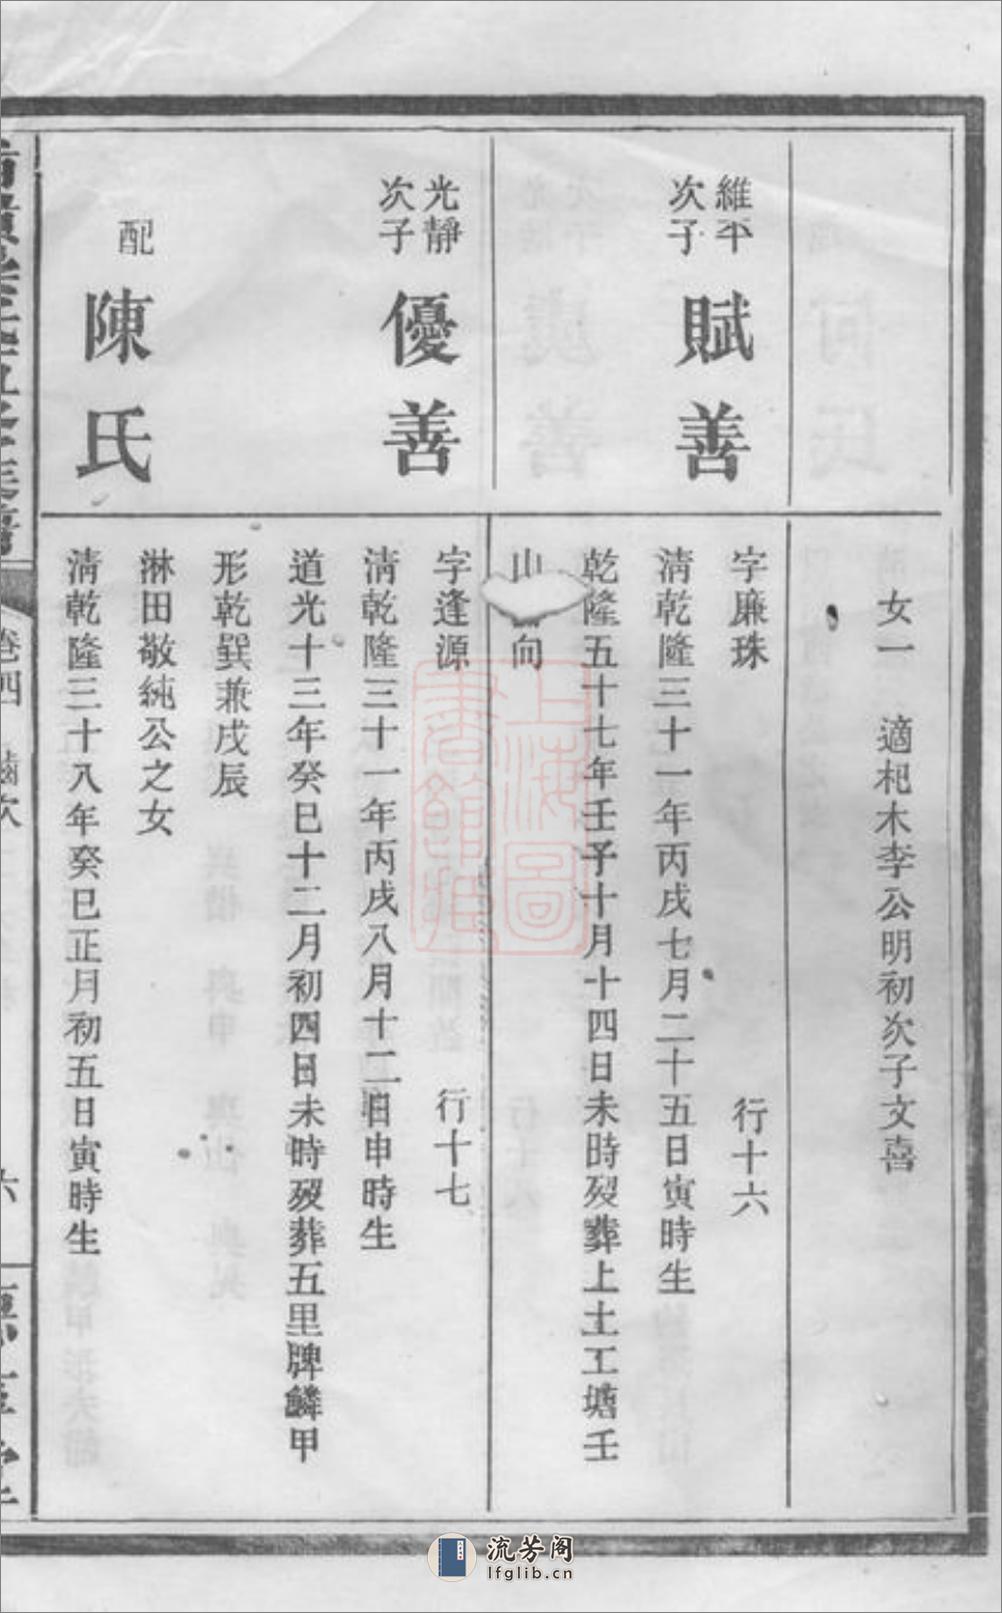 女一　適杞木李公明初次子文喜
維平
次子
賦善
字廉珠　行十六
清乾隆三十一年丙戌七月二十五日寅時生
乾隆五十七年壬子十月十四日未時歿葬上土工塘壬
山　向
光靜
次子
優善
字逢源　行十七
清乾隆三十一年丙戌八月十二日申時生
道光十三年癸巳十二月初四日未時歿葬五里牌鱗甲
形乾巽兼戌辰
配
陳氏
淋田敬純公之女
清乾隆三十八年癸巳正月初五日寅時生
卷四　齒次
六
上海圖書館藏
流芳阁
lfglib.cn